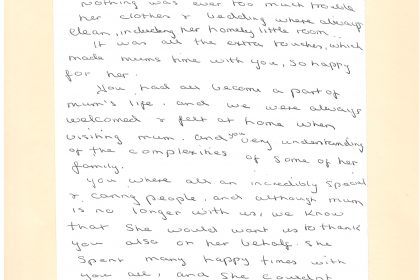 Nothing was ever too much trouble
her clothes & bedding where always
clean, including her homely little room..
It was all the extra touches, which
made mums time with you, so happy
for her.
You had all become a part of
mum's life. and we were always
welcomed & felt at home when
visiting mum. and you very understanding
of the complexities of some of her
family.
You where all an incredibly special
& caring people, and although mum
is no longer with us, we know
that she would want us to thank
you also on her behalf, she
spent many happy times with
you all, and she couldn't